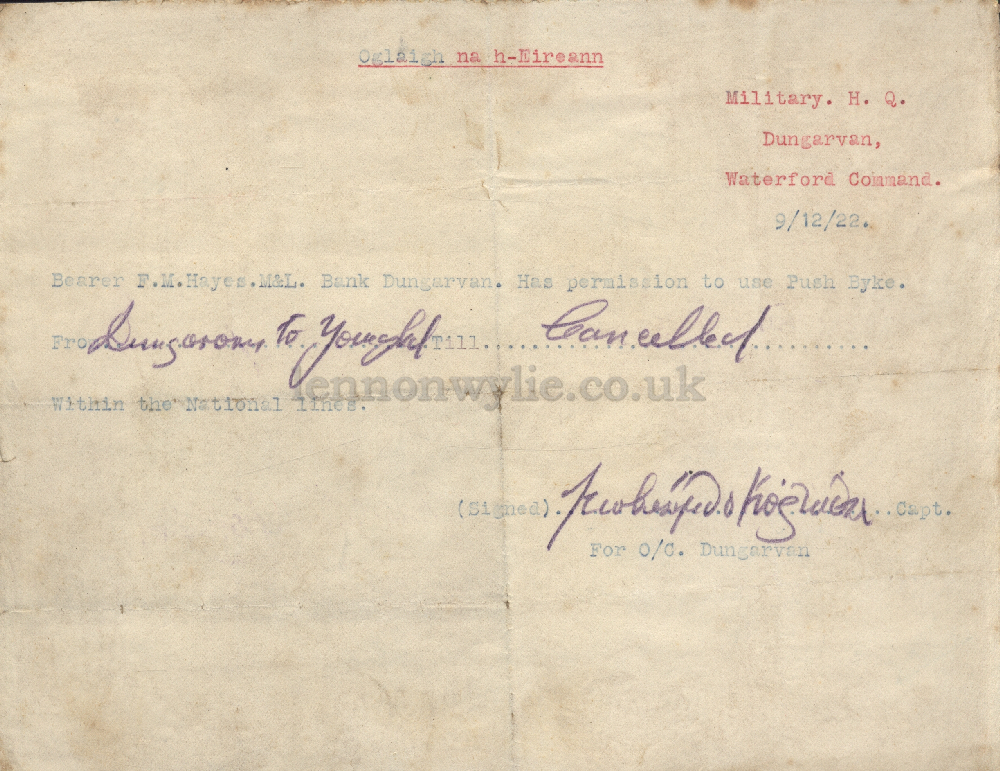 Oglaigh na h-Eireann
Military. H. Q.
Dungarvan,
Waterford Command.
9/12/22.
Bearer F.M.Hayes.M&L. Bank Dungarvan. Has permission to use Push Byke.
From Dungarvan to Youghal Till..... Cancelled .....
lennonwylie.co.uk
Within the National lines.
(Signed). ..Capt.
For O/C. Dungarvan